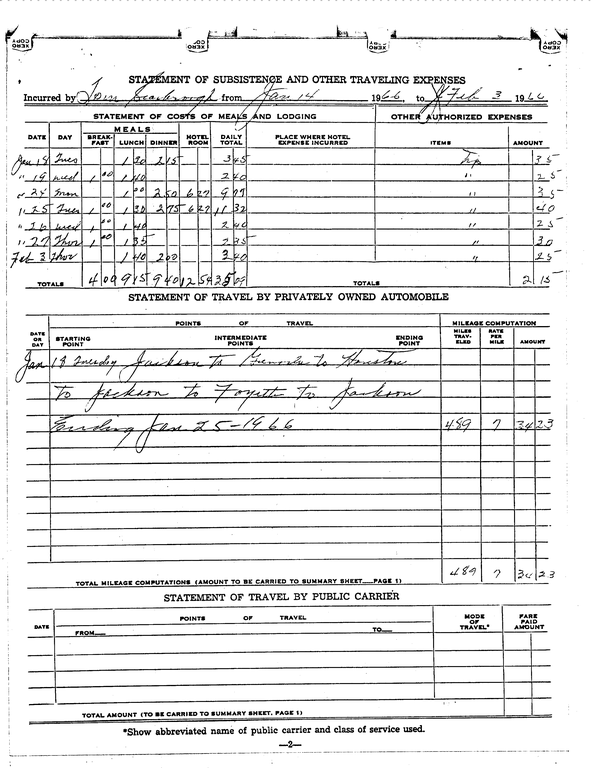 XEROX COPY XEROX COPY XEROX COPY XEROX COPY
STATEMENT OF SUBSISTENCE AND OTHER TRAVELING EXPENSES
Incurred by Tom Scarbrough from Jan 14 1966, to Feb 3 1966
STATEMENT OF COSTS OF MEALS AND LODGING OTHER AUTHORIZED EXPENSES
MEALS
DATE DAY BREAK-FAST LUNCH DINNER HOTEL ROOM DAILY TOTAL PLACE WHERE HOTEL EXPENSE INCURRED ITEMS AMOUNT
Jan 18 Tues 1 30 2 15 3 45 Tip 35
" 19 Wed 1 00 1 40 2 40 " 25
" 24 Mon 1 00 2 50 6 27 9 77 " 35
" 25 Tues 1 00 1 30 2 75 6 27 11 32 " 40
" 26 Wed 1 00 1 40 2 40 " 25
" 27 Thur 1 00 1 35 2 35 " 30
Feb 3 Thur 1 40 2 00 3 40 " 25
TOTALS 4 00 9 15 9 40 12 54 35 09 TOTALS 2 15
STATEMENT OF TRAVEL BY PRIVATELY OWNED AUTOMOBILE
POINTS OF TRAVEL MILEAGE COMPUTATION
DATE OR DAY STARTING POINT INTERMEDIATE POINTS ENDING POINT MILES TRAV-ELED RATE PER MILE AMOUNT
Jan 18 Tuesday Jackson to to Houston
to Jackson to Fayette to Jackson
Ending Jan 25-1966 489 7 34 23
TOTAL MILEAGE COMPUTATIONS (AMOUNT TO BE CARRIED TO SUMMARY SHEET—PAGE 1) 489 7 34 23
STATEMENT OF TRAVEL BY PUBLIC CARRIER
DATE POINTS OF TRAVEL MODE OF TRAVEL* FARE PAID AMOUNT
FROM— TO—
TOTAL AMOUNT (TO BE CARRIED TO SUMMARY SHEET. PAGE 1)
*Show abbreviated name of public carrier and class of service used.
—2—